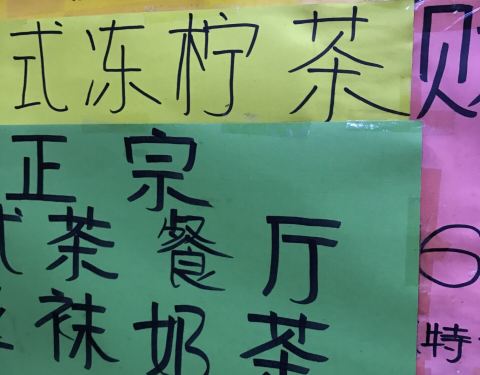 式冻柠茶
正宗
式茶餐厅
袜奶茶
6
特